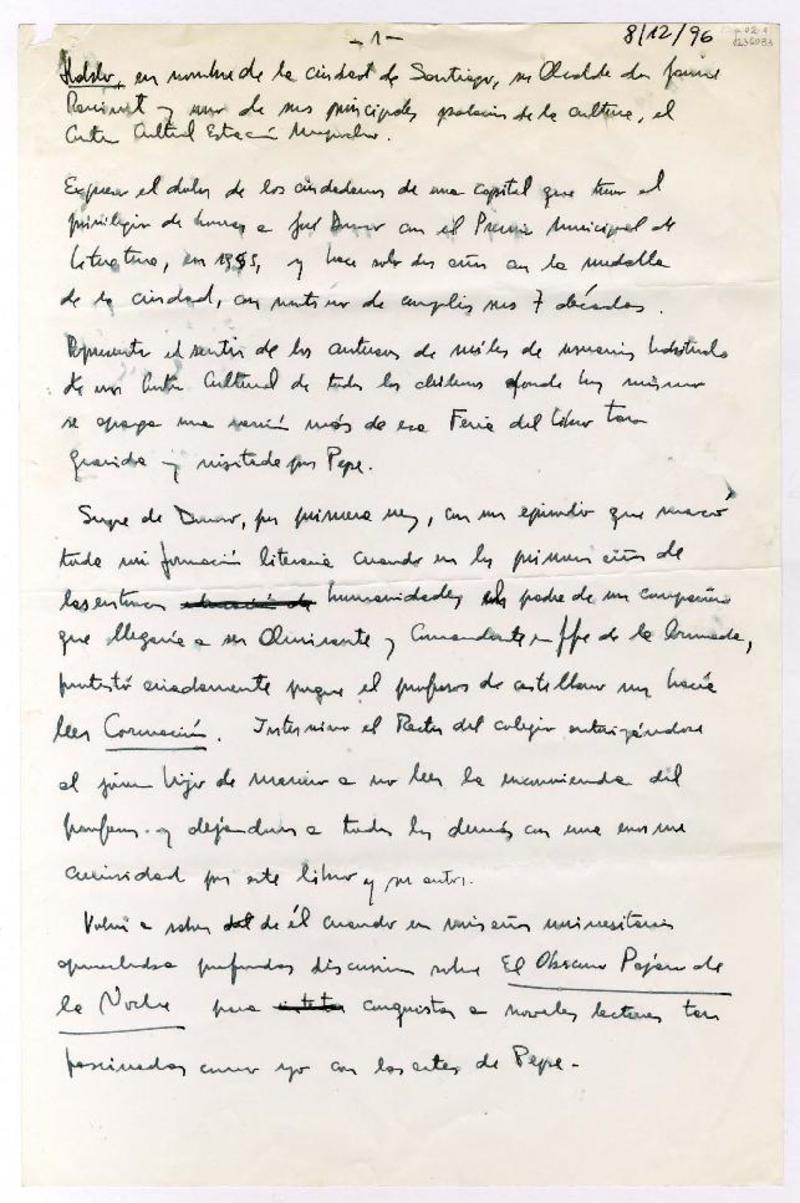 - 1 -
8/12/96
Hablo, en nombre de la ciudad de Santiago, su Alcalde don Jaime
Ravinet y uno de sus principales palacios de la cultura, el
Centro Cultural Estación Mapocho.
Expreso el dolor de los ciudadanos de una capital que tuvo el
privilegio de honrar a José Donoso con el Premio Municipal de
Literatura, en 1955, y hace solo dos años con la medalla
de la ciudad, con motivo de cumplir sus 7 décadas.
Represento el sentir de los centenares de miles de usuarios habituales
de un Centro Cultural de todos los chilenos donde hoy mismo
se apaga una versión más de esa Feria del Libro tan
querida y visitada por Pepe.
Supe de Donoso, por primera vez, con un episodio que marcó
toda mi formación literaria cuando en los primeros años de
las entonces humanidades, padre de un compañero
que llegaría a ser Almirante y Comandante en Jefe de la Armada,
protestó airadamente porque el profesor de castellano nos hacía
leer Coronación. Intervino el Rector del colegio autorizándose
al joven hijo de marino a no leer la encomienda del
profesor y dejándonos a todos los demás con una enorme
curiosidad por este libro y su autor.
Volví a saber de él cuando en mis años universitarios
aprovechaba profundas discusiones sobre El Obsceno Pájaro de
la Noche para conquistar a noveles lectoras tan
fascinadas como yo con las artes de Pepe.